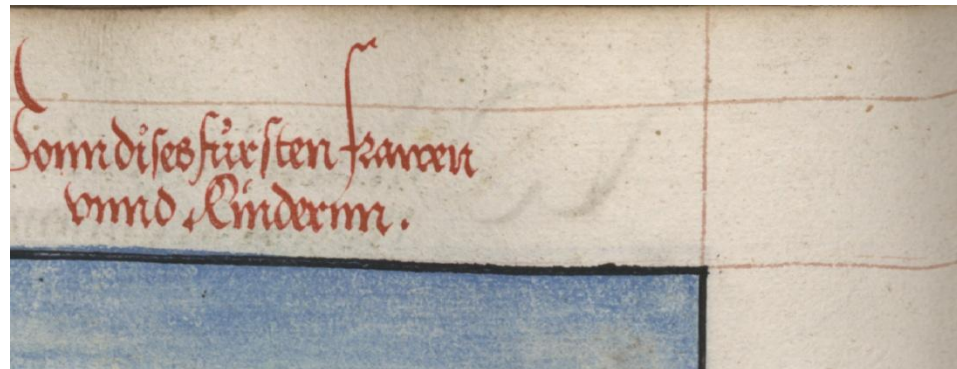 Vonn dises fürsten frawen
vnnd Kindernn.